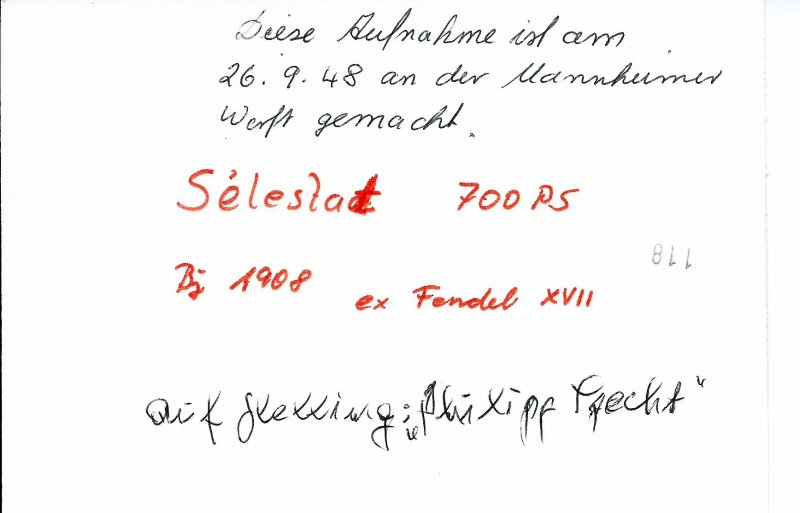 Diese Aufnahme ist am
26.9.48 an der Mannheimer
Werft gemacht.
Sélestat 700 PS
Bj 1908 ex Fendel XVII
118
auf Helling: „Philipp Specht"